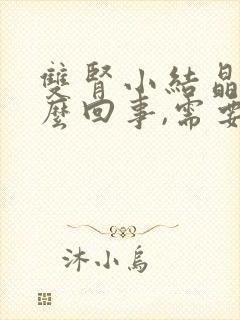 雙腎小結晶
麼回事,需要
沐小烏